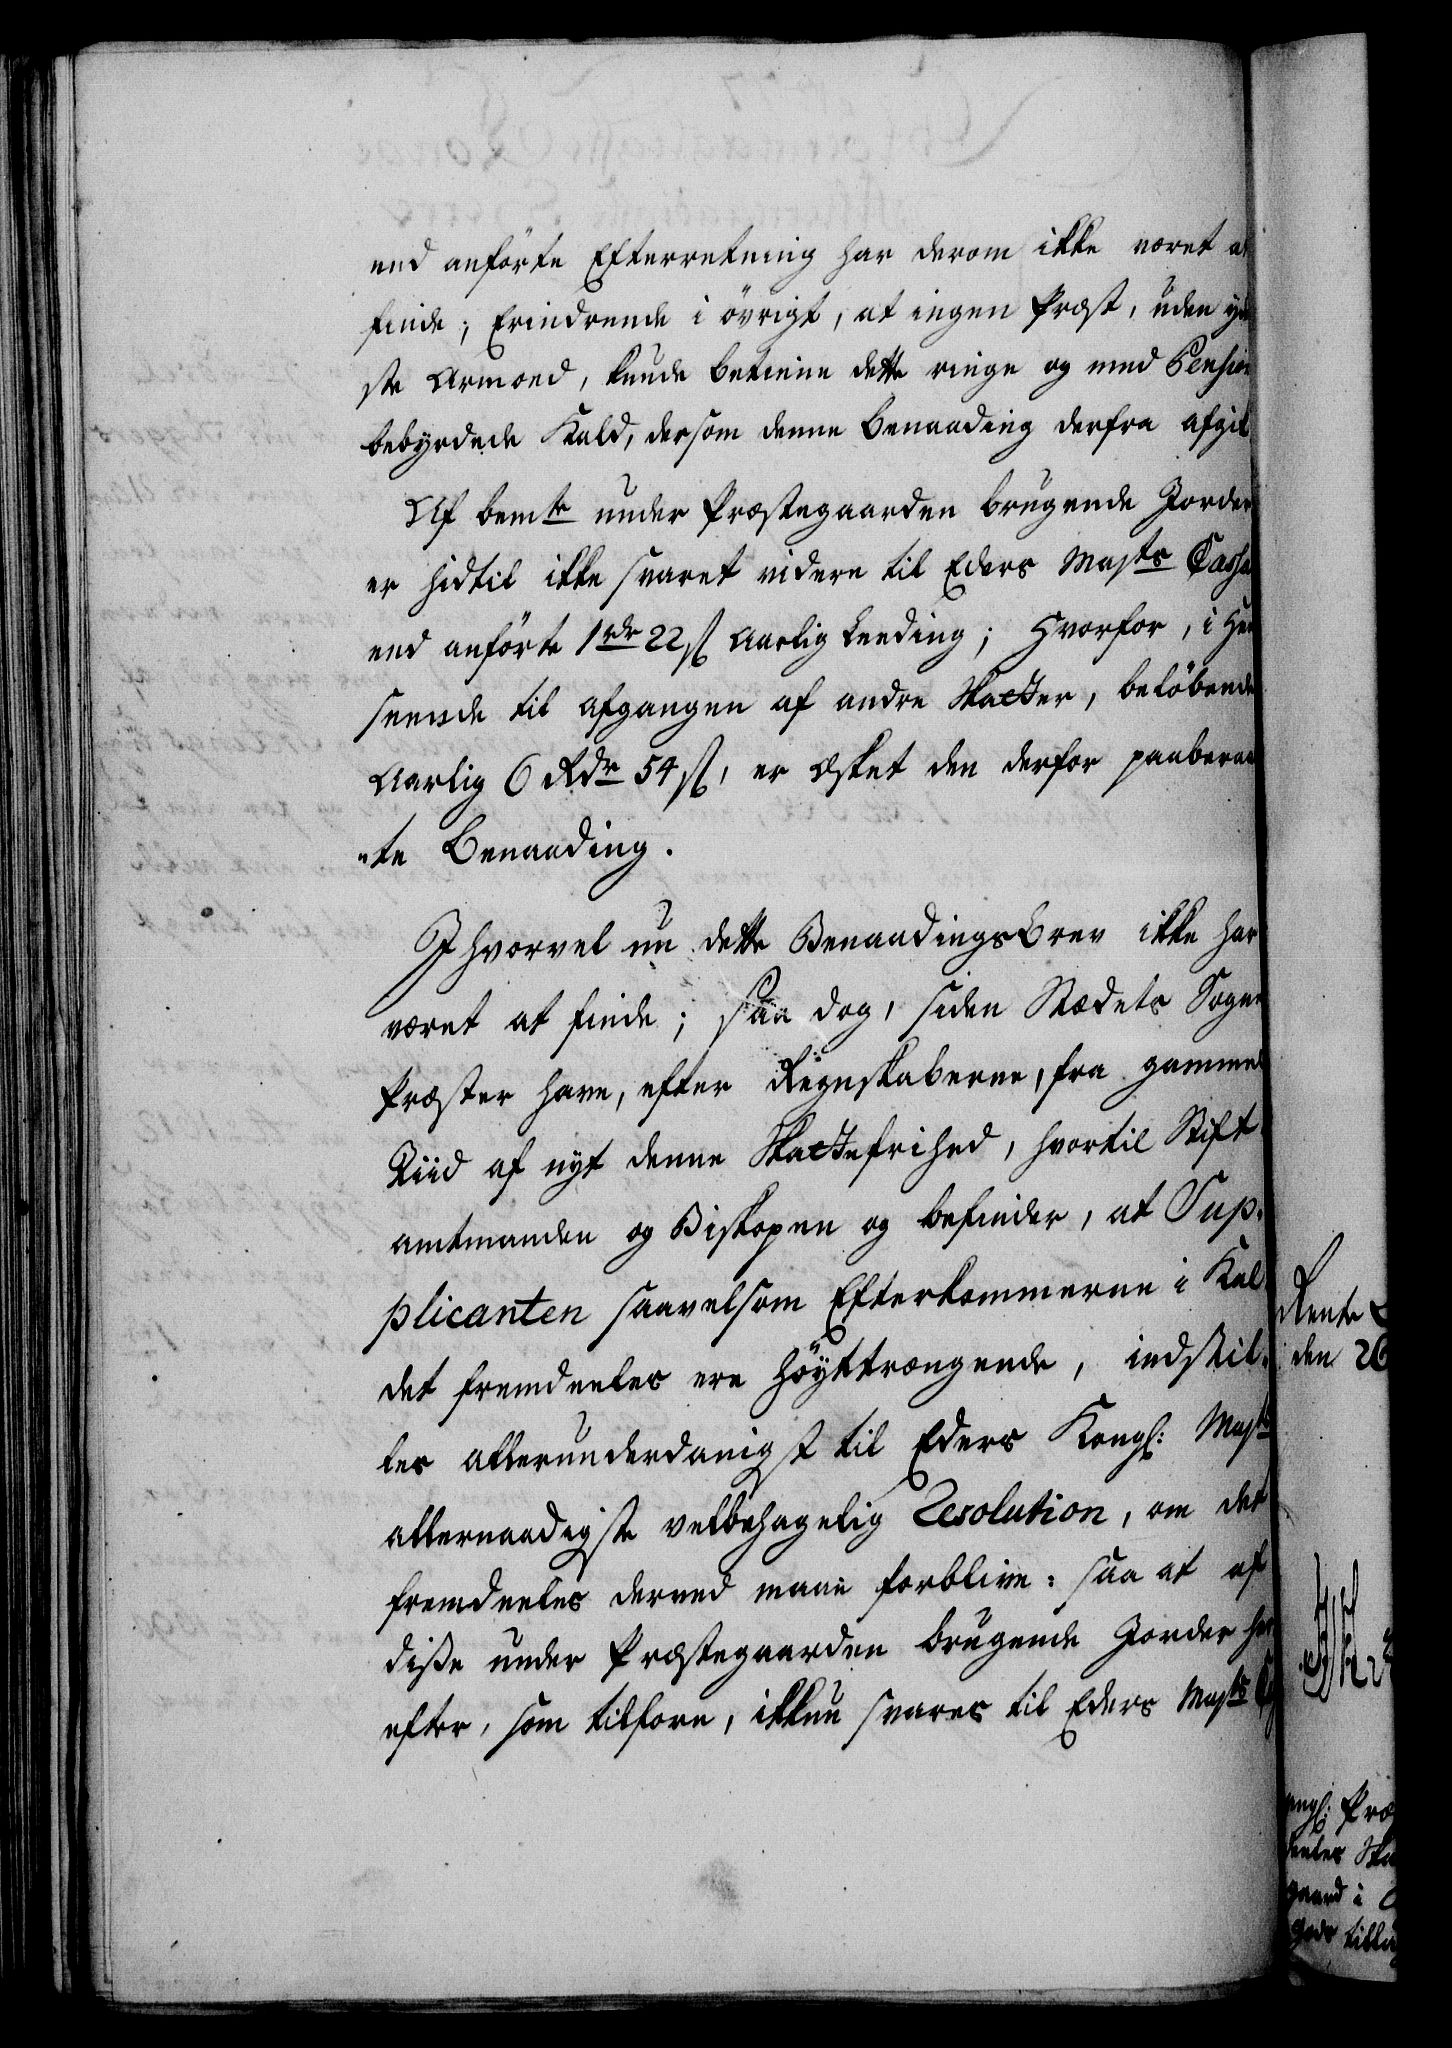 end anförte Efterretning har derom ikke været at
finde; Erindrende i övrigt, at ingen Præst, uden yder
ste Armoed, kunde betiene dette ringe og med Pension
bebyrdede Kald, dersom denne Benaading derfra afgik
Af bemte under Præstegaarden brugende Jorder
er hidtil ikke svaret videre til Eders Mayts Cassa
end anförte 1 rdr 22 ß Aarlig Leeding; Hvorfor, i Hen
seende til afgangen af andre Skatter, belöbende
Aarlig 6 Rdr 54 ß, er Æsket den derfor paaberaab
"te Benaading.
Ihvorvel nu dette Benaadings Brev ikke har
været at finde; saa dog, siden Stædets Sogne
Præster have, efter Regnskaberne, fra gammel
Tiid af nyt denne Skattefrihed, hvortil Stift
amtmanden og Biskopen og befinder, at Sup-
plicanten saavelsom Efterkommerne i Kal
det fremdeeles ere höyttrængende, indstil-
les allerunderdanigst til Eders Kongl: Mayts
allernaadigste velbehagelig Resolution, om det
fremdeeles derved maae forblive: saa at af
diße under Præstegaarden brugende Jorder her
efter, som tilforn, ikkun svares til Eders Mayts
Rente
den 26
ongl: Præ
deeles Ska
gaard i